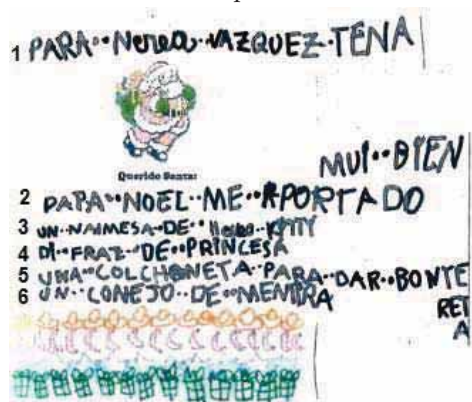 1 PARA··Nerea··VAZQUEZ·TENA
Querido Santa:
MUI··BIEN
2 PAPA··NOEL··ME··APORTADO
3 UN··NAIMESA··DE··Hello··KITTY
4 DI··FRAZ··DE··PRINCESA
5 UNA··COLCHONETA··PARA··DAR··BONTE
REI
A
6 UN··CONEJO··DE··MENTIRA